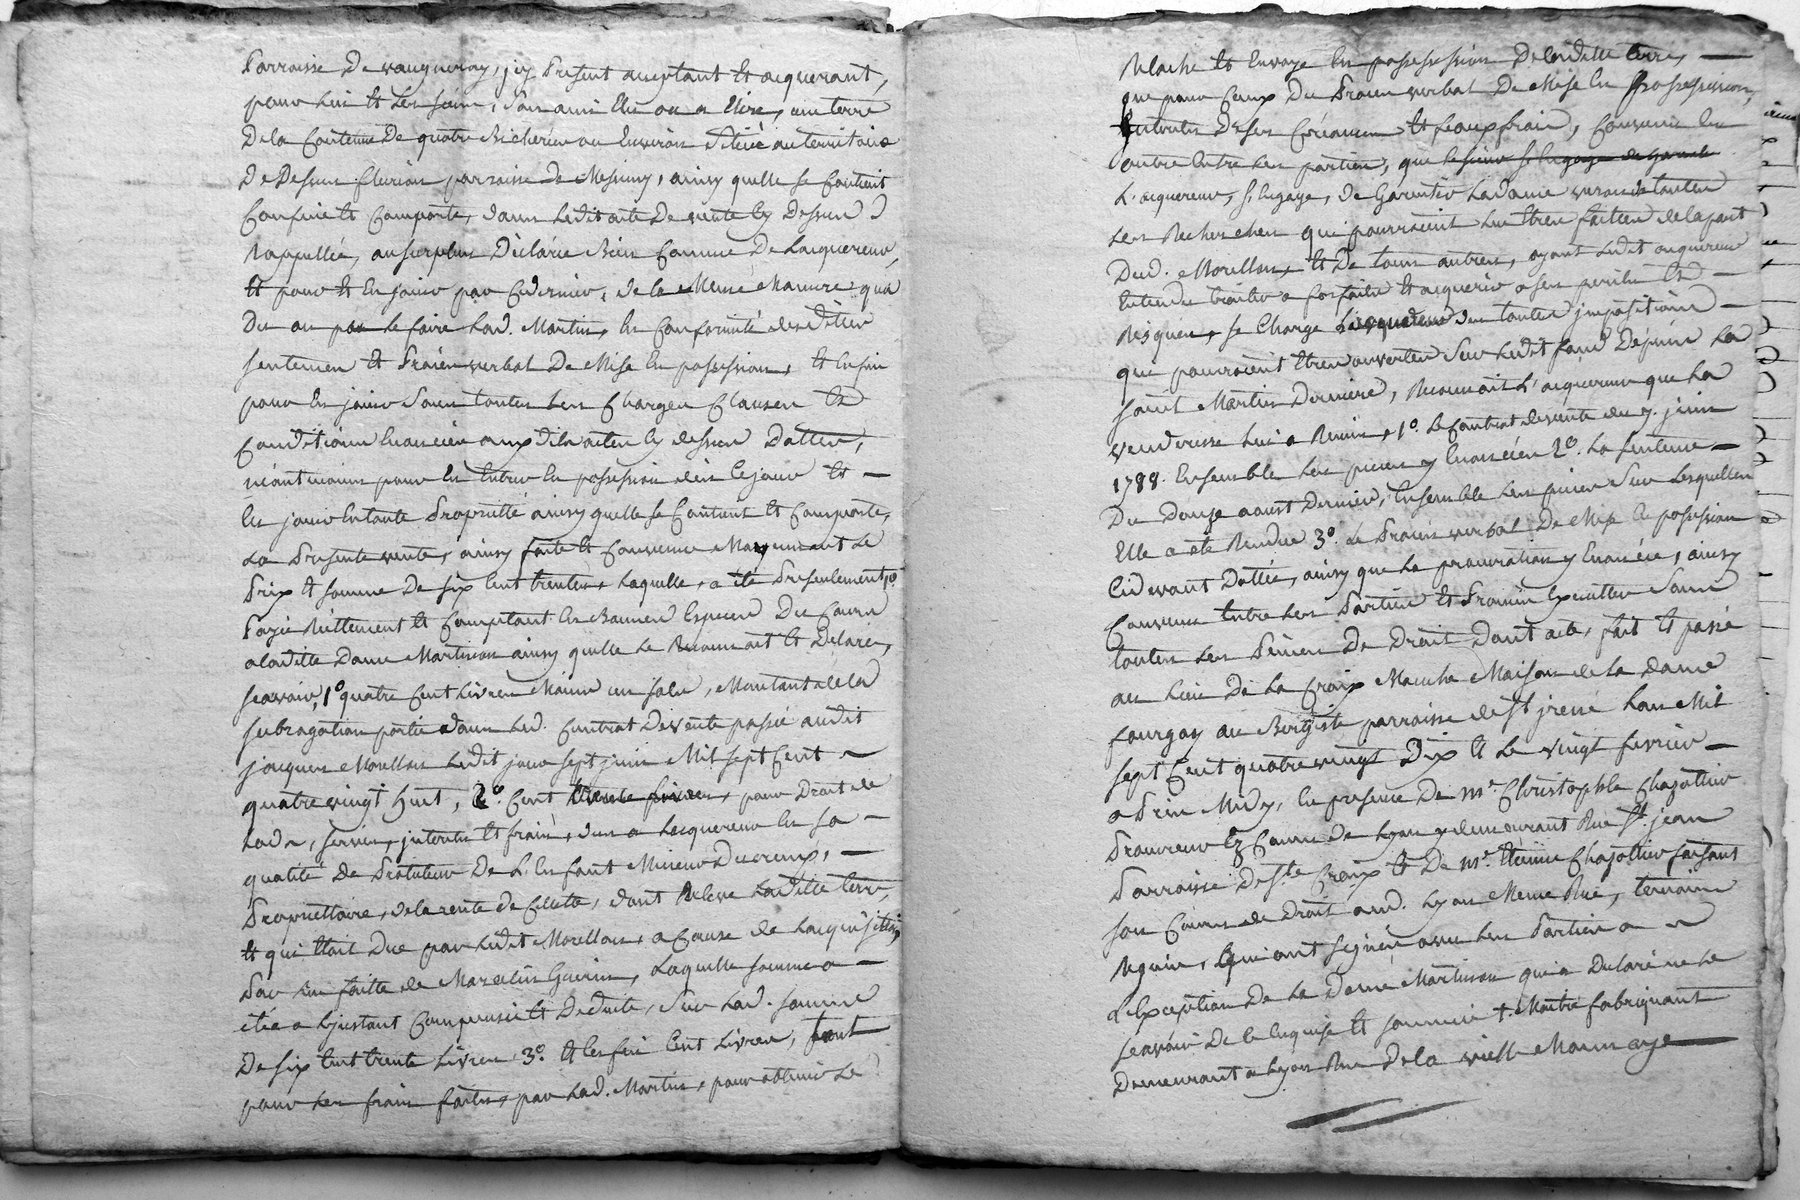 Parroisse de vaugneray, icy Present acceptant et acquerant,
pour lui et les siens, son ami élu ou a élire, une terre
De la Contenue De quatre Bicherées ou Environ située au territoire
De Dessus fleurieu parroisse de Messimy, ainsy quelle se Contient
Confine et Comporte, dans ledit acte De vente cy Dessus
Rappellée, au surplus Déclarée Bien Connue De Lacquereur,
et pour et En jouir par Ce dernier, de la Même Maniere qua
Du ou pu le faire lad. Martin, En Conformité desdittes
sentence et Procès verbal De Mise En possession, et Enfin
pour En jouir sous toutes les Charges Clauses Et
Conditions Enoncées auxdits actes cy dessus Dattés,
néantmoins pour En Entrer En possession dès Ce jour Et
En jouir En toute Proprieté ainsy quelle se Contient Et Comporte,
La Presente vente, ainsy faite et Convenue Moyennant Le
Prix et somme De six Cent trente, laquelle, a été Presentement
Payée Réellement et Comptant En Bonnes Especes Du Cours
a laditte Dame Martin ainsy quelle Le Reconnoit Et Déclare,
scavoir, 1º quatre Cent Livres Moins un sols, Montant de la
subrogation portée dans led. Contrat De vente passé audit
jacques Morellon ledit jour sept juin Mil sept Cent
quatre vingt huit, 2º. Cent trente livres, pour Droit de
Lods, servis, interets et frais, dus a Lacquereur En sa
qualité De Protuteur De L'Enfant Mineur Ducreux,
Propriettaire, de la rente de , dont Releve Laditte terre,
et qui Etoit Due par ledit Morellon, a Cause de Lacquisition
Par lui faitte de Marcelin Guerin, Laquelle somme a
étée a L'jnstant Compensée et Deduite, sur lad. somme
De six Cent trente Livres 3º. Et Enfin Cent Livres, sont
pour les frais faits, par lad. Martin, pour obtenir Le
Relache Et Envoye En possession De laditte terre,
que pour Ceux Du Procès verbal De Mise En Possession,
interets De ses Créances et feaux frais, Convenu En
outre Entre les parties, que
L'acquereur, s'Engage, de Garentir La dame venderesse de toutes
Les Recherches qui pourroient lui Etre faittes de la part
Dud. Morellon, Et De tous autres, ayant ledit acquereur
Entendu traiter a forfaite Et acquerir a ses perils Et
Risques, se Charge L'acquereur de toutes jmpositions
que pourroient Etre ouvertes sur ledit fond Depuis la
saint Martin Derniere, Reconnoit L'acquereur que La
venderesse lui a Remis, 1º. Le Contrat de vente du 7. juin
1788. Ensemble les pieces y Enoncées 2º. La sentence
Du Douze aoust Dernier, Ensemble les pieces sur Lesquelles
Elle a été Rendue 3º. Le Procès verbal De Mise En possession
Cidevant Dattée, ainsy que La procuration y Enoncée, ainsy
Convenu Entre les Parties Et Promis Executer sous
toutes les Peines De Droit Dont acte, fait Et passé
au Lieu De La Croix Blanche Maison de la Dame
fourgon au Bergiste parroisse de St jrenée Lan Mil
sept Cent quatre vingt Dix Et Le vingt fevrier
a Prin Midy, En presence De Me. Christophle Chazottier
Procureur Ez Cours de Lyon y demeurant Rue St. jean
Parroisse De Ste. Croix Et De Me. Etienne Chazottier faisant
son Cours de Droit aud. Lyon Même Rue, temoins
Requis, Qui ont signés avec les Parties a
L'Exception De La Dame Martin qui a Declaré ne le
scavoir De ce Enquise Et sommée + Maitre fabriquant
Demeurant a Lyon Rue De la vieille Monnaye